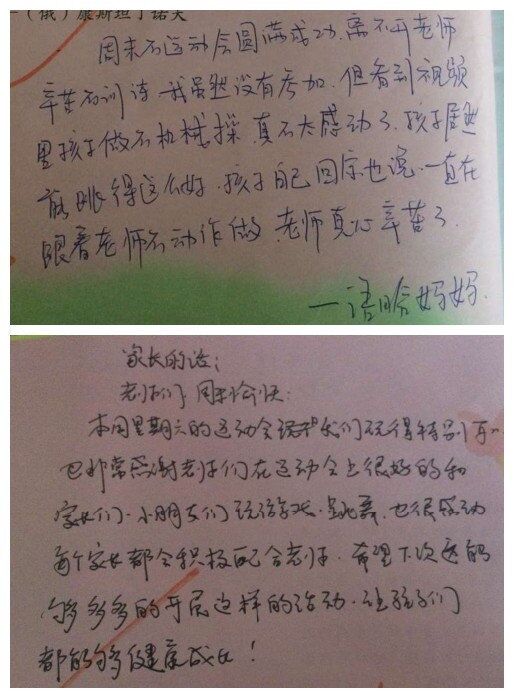 (俄)康斯坦丁诺夫
周末不运动会圆满成功,离不开老师
辛苦不训诗.我虽然没有参加.但看到视频
里孩子做不机械操,真不太感动了.孩子居然
能跳得这么好.孩子自己回家也说.一直在
跟着老师不动作做.老师真心辛苦了.
一语晗妈妈.
家长的话:
老师们:周末愉快:
本周星期六的运动会我们玩得特别
也非常感谢老师们在运动会上很好的和
家长们.小朋友们玩游戏.跳舞.也很感动
每个家长都会积极配合老师.希望下次还能
够多多多的开展这样的活动.让孩子们
都能够健康成长!